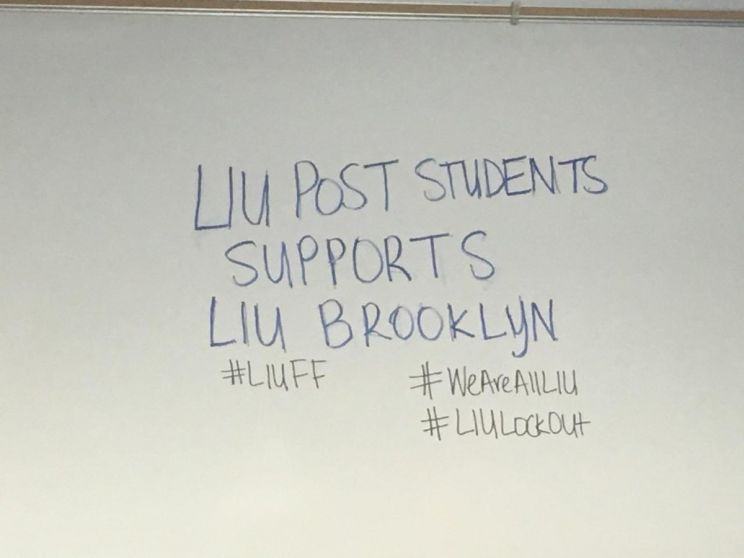 LIU POST STUDENTS
SUPPORTS
LIU BROOKLYN
#LIUFF #WeAreAllLIU
#LIULockOut